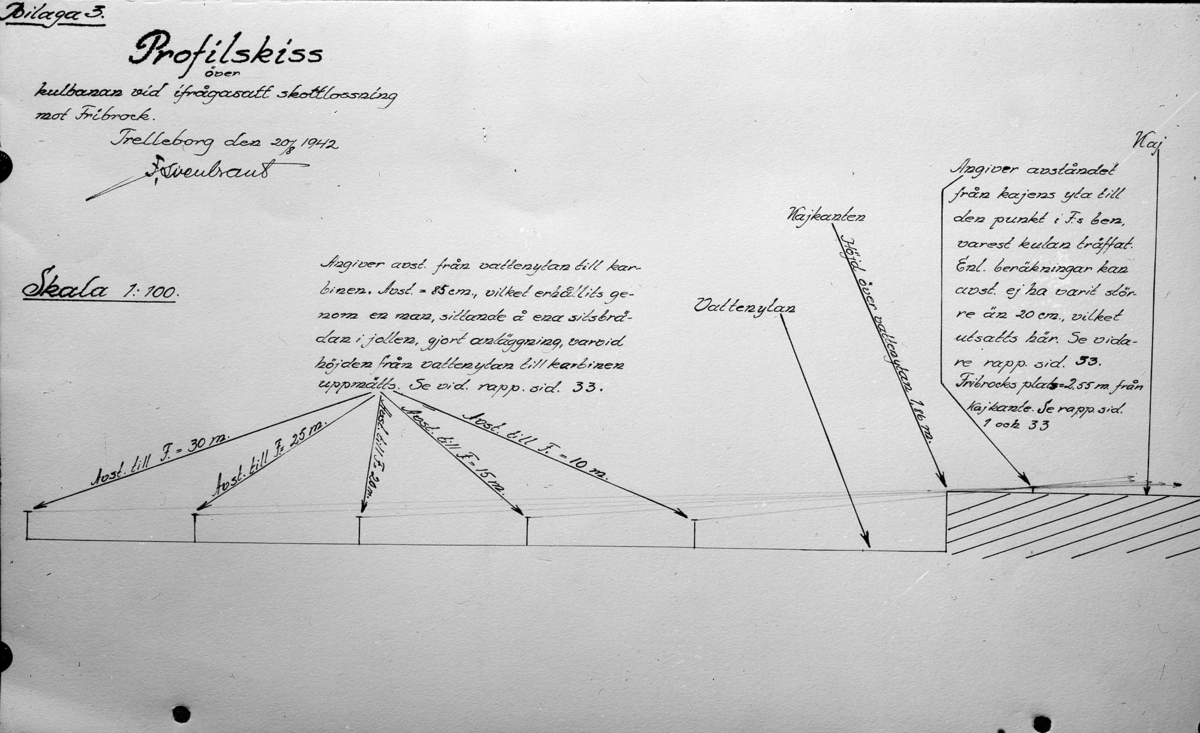 Bilaga 3.
Profilskiss
över
kulbanan vid ifrågasatt skottlossning
mot Fribrock.
Trelleborg den 20/8 1942
Skala 1:100.
Angiver avst. från vattenytan till kar-
binen. Avst. = 85 cm., vilket erhållits ge-
nom en man, sittande å ena sitsbrä-
dan i jollen, gjort anläggning, varvid
höjden från vattenytan till karbinen
uppmätts. Se vid. rapp. sid. 33.
Avst. till F. = 30 m.
Avst. till F. = 25 m.
Avst. till F. 20 m.
Avst. till F. = 15 m.
Avst till F. = 10 m.
Vattenytan
Kajkanten
Höjd över vattenytan 1.86 m.
Angiver avståndet
från kajens yta till
den punkt i F:s ben,
varest kulan träffat.
Enl. beräkningar kan
avst. ej ha varit stör-
re än 20 cm., vilket
utsatts här. Se vida-
re rapp. sid. 33.
Fribrocks plats = 2,55 m. från
kajkante. Se rapp. sid.
1 och 33
Kaj